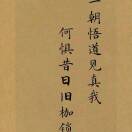 一朝悟道見真我
何惧昔日旧枷锁